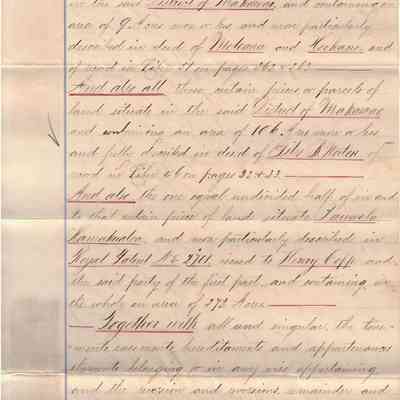 in the said District of Makawao, and containing an
area of 9 Acres more or less, and more particularly
described in deed of and and
of record in Liber 51 on pages 262 & 263
And also all those certain pieces or parcels of
land situate in the said District of Makawao
and containing an area of 106 Acres more or less
and fully described in deed of of
record in Liber 66 on pages 32 & 33
And also the one equal undivided half of in and
to that certain piece of land situate Pauwela
Hamakualoa, and more particularly described in
Royal Patent No 2701 issued to Henry Copp and
the said party of the first part, and containing in
the whole an area of 272 Acres
Together with all and singular the tene-
-ments easements hereditaments and appurtenances
thereunto belonging or in any wise appertaining
and the reversion and reversions, remainder and